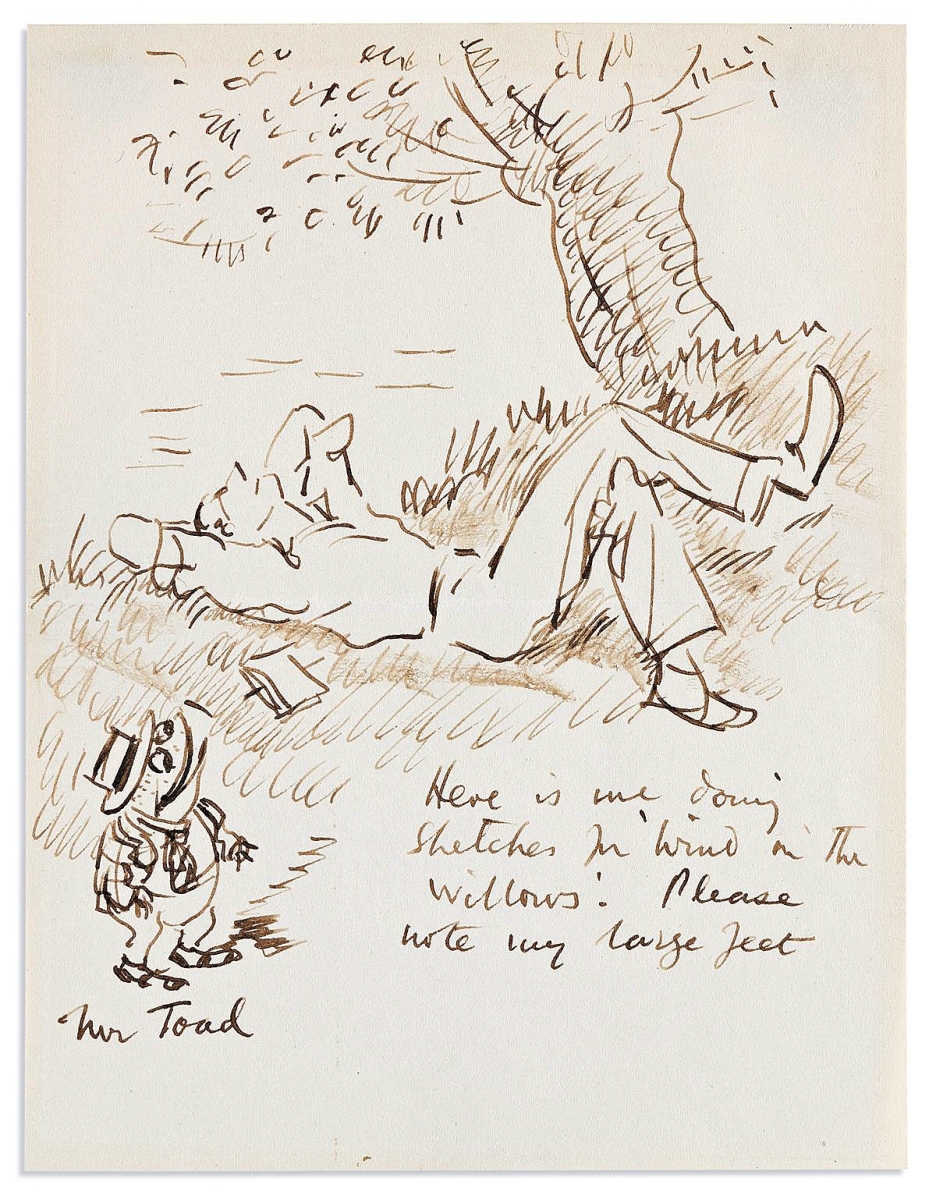 Here is me doing
sketches for 'Wind in the
Willows'. Please
note my large feet
Mr Toad